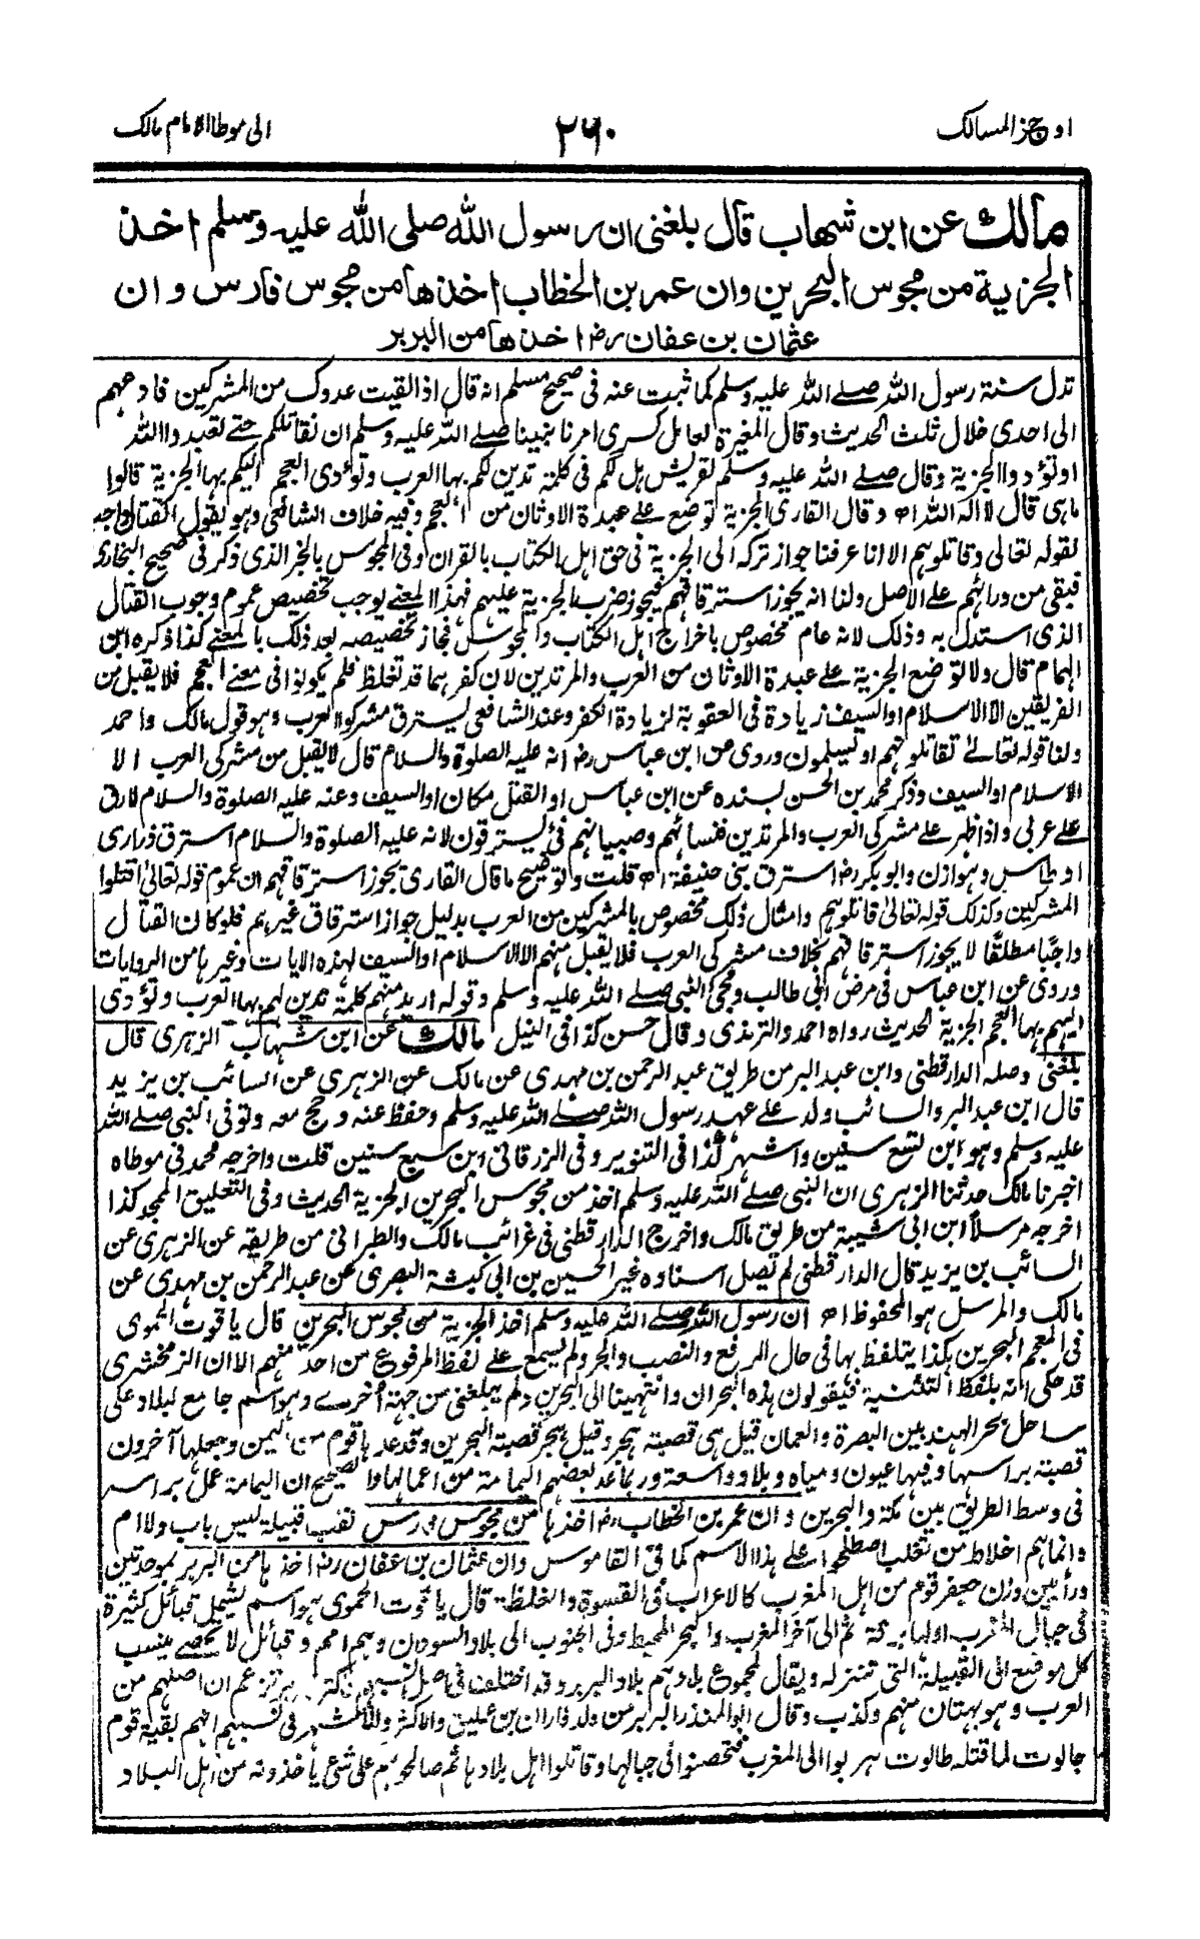 اوجز المسالك
٢٦٠
الى موطا الامام مالك
مالك عن ابن شهاب قال بلغنى ان رسول الله صلى الله عليه وسلم اخذ
الجزية من مجوس البحرين وان عمر بن الخطاب اخذها من مجوس فارس وان
عثمان بن عفان رض اخذها من البربر
تدل سنة رسول الله صلے الله عليه وسلم كما ثبت عنه فى صحيح مسلم انه قال اذا لقيت عدوك من المشركين فادعهم
الى احدى خلال ثلث الحديث وقال المغيرة لعامل كسرى امرنا نبينا صلے الله عليه وسلم ان نقاتلكم حتے تعبدوا الله
او تؤدوا الجزية وقال صلے الله عليه وسلم لقريش هل لكم فى كلمة تدين لكم بها العرب وتؤدى العجم اليكم بها الجزية قالوا
ما هى قال لا اله الا الله اھ وقال القارى الجزية توضع علے عبدة الاوثان من العجم وفيه خلاف الشافعى وهو يقول القتال واجب
لقوله تعالى وقاتلوهم الا انا عرفنا جواز تركه الى الجزية فى حق اهل الكتاب بالقران وفى المجوس بالخبر الذى ذكر فى صحيح البخارى
فبقى من ورائهم علے الاصل ولنا انه يجوز استرقاقهم فيجوز ضرب الجزية عليهم فهذا المعنے يوجب تخصيص عموم وجوب القتال
الذى استدل به وذلك لانه عام مخصوص باخراج اهل الكتاب والمجوس فجاز تخصيصه بعد ذلك بالمعنے كذا ذكره ابن
الهمام قال ولا توضع الجزية علے عبدة الاوثان من العرب والمرتدين لان كفرهما قد تغلظ فلم يكونوا فى معنے العجم فلا يقبل من
الفريقين الا الاسلام او السيف زيادة فى العقوبة لزيادة الكفر وعند الشافعى يسترق مشركو العرب وهو قول مالك واحمد
ولنا قوله تعالے تقاتلونهم او يسلمون وروى عن ابن عباس رض انه عليه الصلوة والسلام قال لا يقبل من مشركى العرب الا
الاسلام او السيف وذكر محمد بن الحسن بسنده عن ابن عباس او القتل مكان او السيف وعنه عليه الصلوة والسلام لارق
علے عربى واذا ظهر علے مشركى العرب والمرتدين فنساؤهم وصبيانهم فئ يسترقون لانه عليه الصلوة والسلام استرق ذرارى
اوطاس وهوازن وابو بكر رض استرق بنى حنيفة اھ قلت وتوضيح ما قال القارى يجوز استرقاقهم ان عموم قوله تعالى اقتلوا
المشركين وكذلك قوله تعالى قاتلوهم وامثال ذلك مخصوص بالمشركين من العرب بدليل جواز استرقاق غيرهم فلو كان القتال
واجبا مطلقا لا يجوز استرقاقهم بخلاف مشركى العرب فلا يقبل منهم الا الاسلام او السيف لهذه الايات وغيرها من الروايات
وروى عن ابن عباس فى مرض ابى طالب ومجئ النبى صلے الله عليه وسلم وقوله اريد منهم كلمة تدين لهم بها العرب وتؤدى
اليهم بها العجم الجزية الحديث رواه احمد والترمذى وقال حسن كذا فى النيل مالك عن ابن شهاب الزهرى قال
بلغنى وصله الدارقطنى وابن عبد البر من طريق عبد الرحمن بن مهدى عن مالك عن الزهرى عن السائب بن يزيد
قال ابن عبد البر والسائب ولد علے عهد رسول الله صلے الله عليه وسلم وحفظ عنه وحج معه وتوفى النبى صلے الله
عليه وسلم وهو ابن تسع سنين واشهر كذا فى التنوير وفى الزرقانى ابن سبع سنين قلت واخرجه محمد فى موطاه
اخبرنا مالك حدثنا الزهرى ان النبى صلے الله عليه وسلم اخذ من مجوس البحرين الجزية الحديث وفى التعليق الممجد كذا
اخرجه مرسلا ابن ابى شيبة من طريق مالك واخرج الدارقطنى فى غرائب مالك والطبرانى من طريقه عن الزهرى عن
السائب بن يزيد قال الدارقطنى لم يصل اسناده غير الحسين بن ابى كبشة البصرى عن عبد الرحمن بن مهدى عن
مالك والمرسل هو المحفوظ اھ ان رسول الله صلے الله عليه وسلم اخذ الجزية من مجوس البحرين قال ياقوت الحموى
فى المعجم البحرين هكذا يتلفظ بها فى حال الرفع والنصب والجر ولم يسمع علے لفظ المرفوع من احد منهم الا ان الزمخشرى
قد حكى انه بلفظ التثنية فيقولون هذه البحران وانتهينا الى البحرين ولم يبلغنى من جهة اخرے وهو اسم جامع لبلاد على
ساحل بحر الهند بين البصرة والعمان قيل هى قصبة هجر وقيل هجر قصبة البحرين وقد عدها قوم من اليمن وجعلها آخرون
قصبة براسها وفيها عيون ومياه وبلاد واسعة وربما عد بعضهم اليمامة من اعمالها والصحيح ان اليمامة عمل براسه
فى وسط الطريق بين مكة والبحرين وان عمر بن الخطاب رض اخذها من مجوس فارس لقب قبيلة ليس باب ولا ام
وانما هم اخلاط من تغلب اصطلحوا علے هذا الاسم كما فى القاموس وان عثمان بن عفان رض اخذها من البربر بموحدتين
ورائين وزن جعفر قوم من اهل المغرب كالاعراب فى القسوة والغلظة قال ياقوت الحموى هو اسم يشمل قبائل كثيرة
فى جبال المغرب اولها برقة ثم الى آخر المغرب والبحر المحيط وفى الجنوب الى بلاد السودان وهم امم وقبائل لا تحصے ينسب
كل موضع الى القبيلة التى تنزله ويقال لمجموع بلادهم بلاد البربر وقد اختلف فى اصل نسبهم فاكثر البربر تزعم ان اصلهم من
العرب وهو بهتان منهم وكذب وقال ابو المنذر البربر من ولد فاران بن عمليق والاكثر والاشهر فى نسبهم انهم بقية قوم
جالوت لما قتله طالوت هربوا الى المغرب فتحصنوا فى جبالها وقاتلوا اهل بلادها ثم صالحوهم على شئ ياخذونه من اهل البلاد